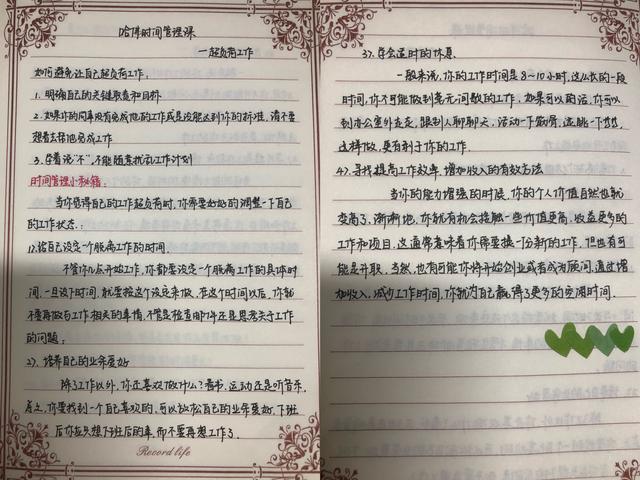 哈佛时间管理课
—超负荷工作
如何避免让自己超负荷工作:
1. 明确自己的关键职责和目标
2. 如果你的同事没有完成他的工作或是没能达到你的标准,请不要
想着去帮他完成工作
3. 学着说“不”,不能随意扰乱工作计划
时间管理小秘籍:
当你觉得自己的工作超负荷时,你需要好好的调整一下自己
的工作状态:
1>.给自己设定一个脱离工作的时间.
不管你几点开始工作,你都要设定一个脱离工作的具体时
间,一旦设下时间,就要按这个设定来做,在这个时间以后,你就
不要再做与工作相关的事情,不管是检查邮件还是思考关于工作
的问题;
2>. 培养自己的业余爱好
除了工作以外,你还喜欢做什么?看书、运动还是听音乐.
总之,你要找到一个自己喜欢的,可以放松自己的业余爱好,下班
后你应先想下班后的事,而不要再想工作了.
Record life
3>. 学会适时的休息
一般来说,你的工作时间是8~10小时,这么长的一段
时间,你不可能做到毫无间歇的工作,如果可以的话,你可以
到办公室外走走,跟别人聊聊天,活动一下筋骨,适能一下些,
这样做,更有利于你的工作.
4>. 寻找提高工作效率,增加收入的有效方法
当你的能力增强的时候,你的个人价值自然也就
变高了,渐渐地,你就有机会接触一些价值更高,收益更多的
工作和项目,这通常意味着你需要换一份新的工作,但也有可
能是升职,当然,也有可能你将开始创业或者成为顾问,通过增
加收入,减少工作时间,你就为自己赢得了更多的空闲时间.